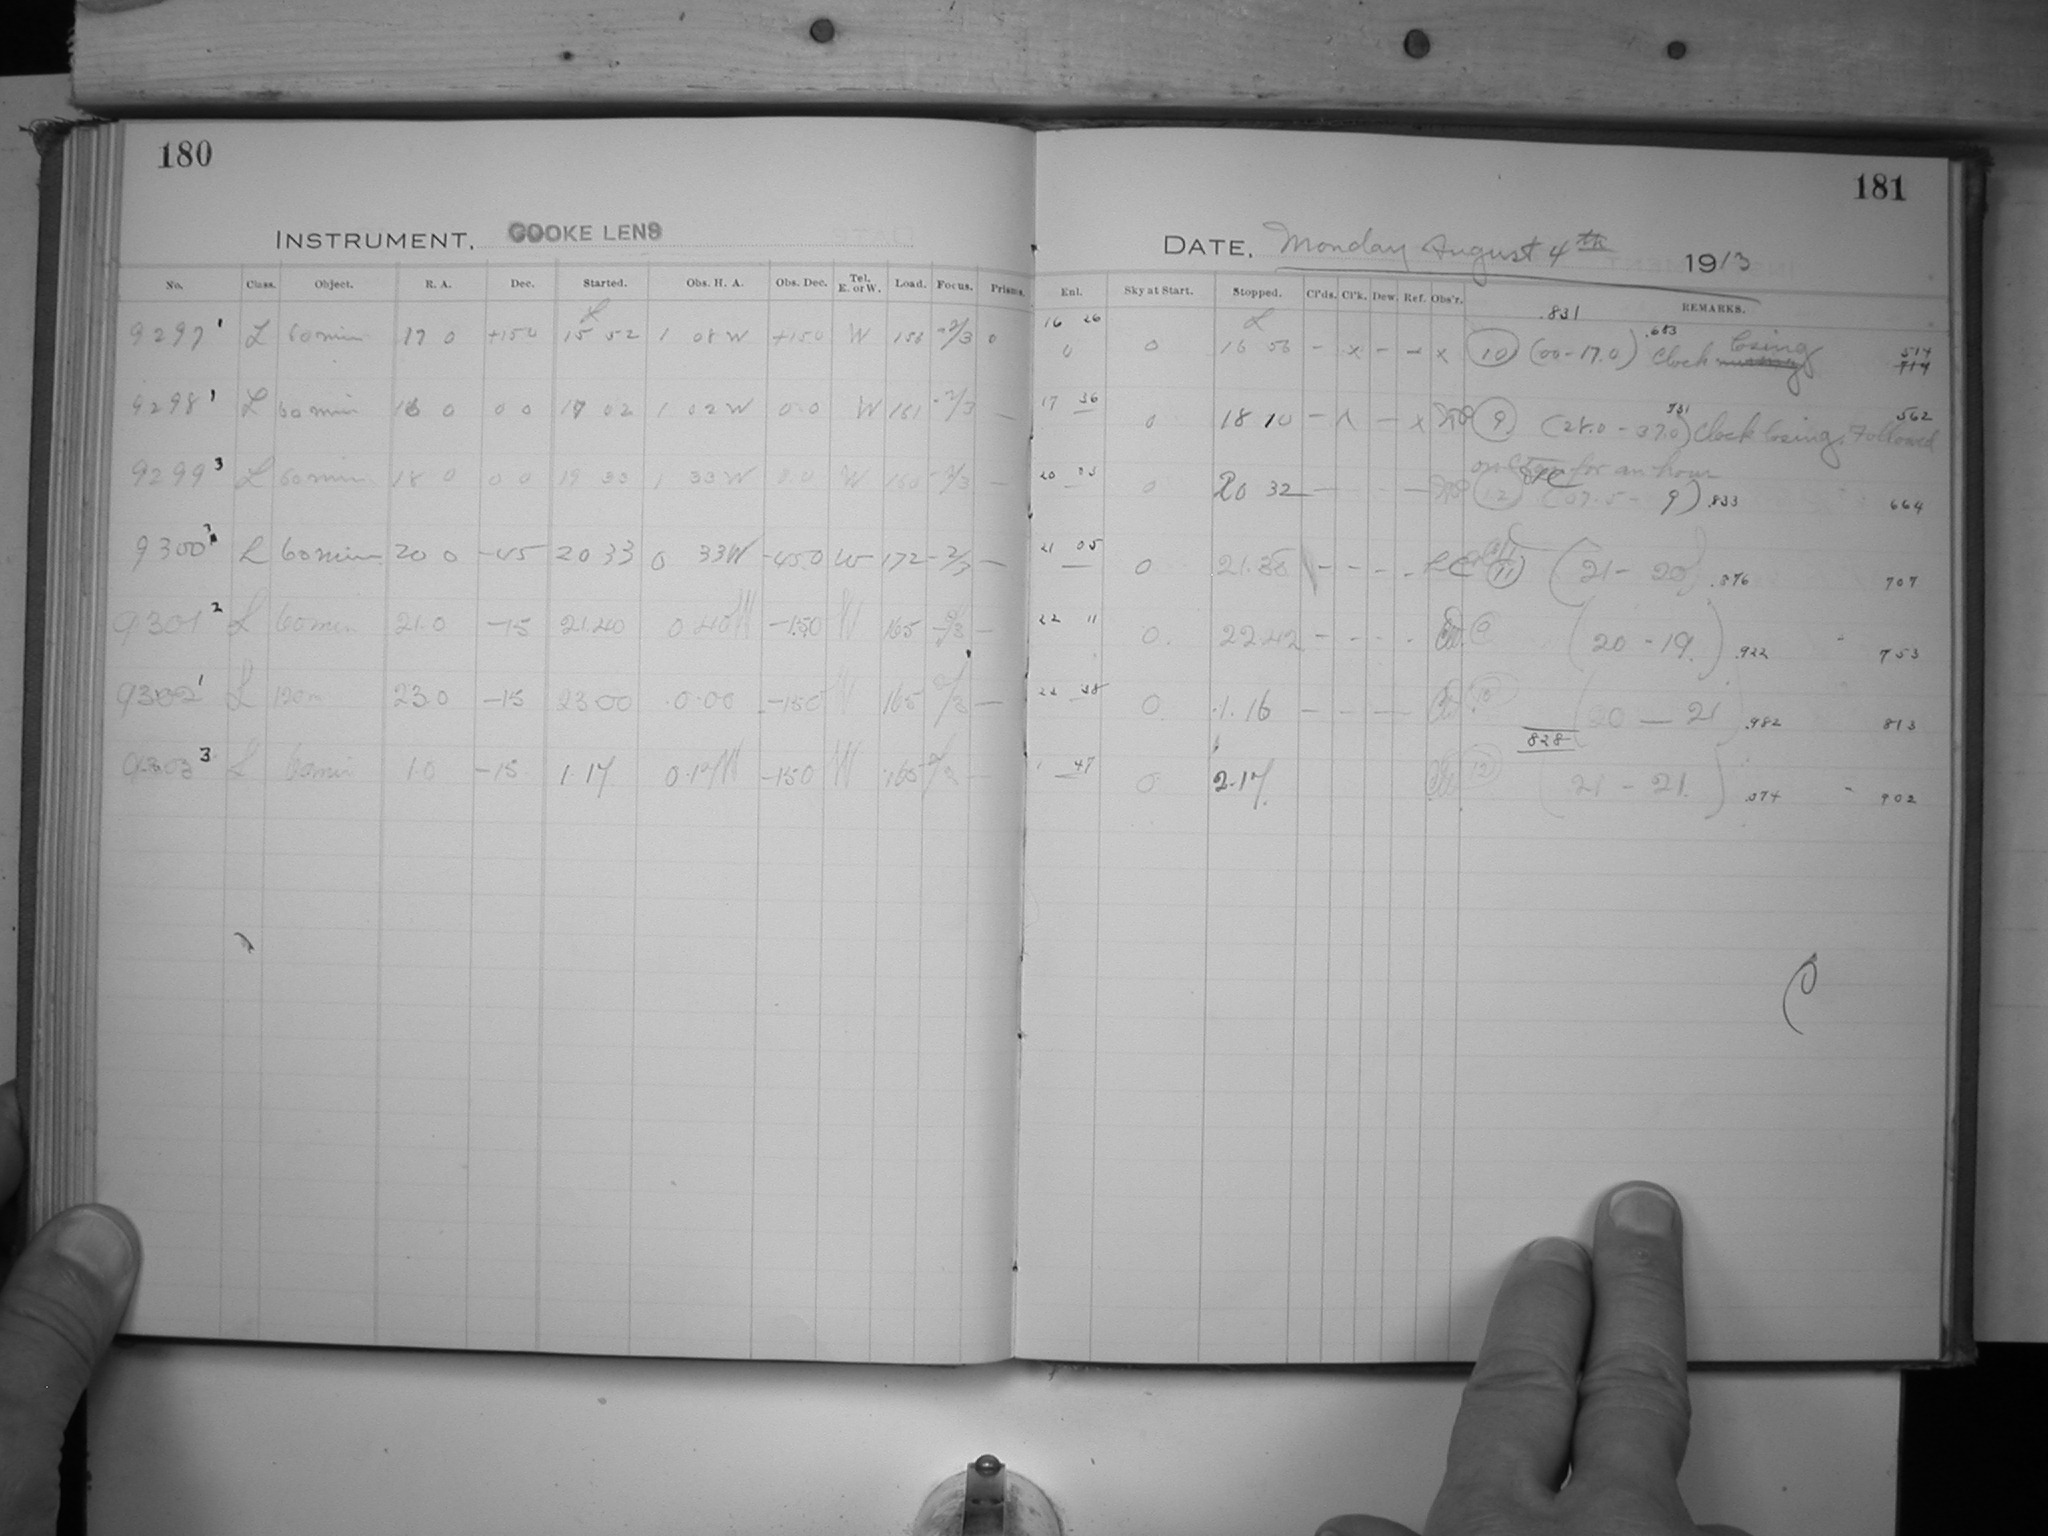 180
INSTRUMENT, COOKE LENS
No. Class. Object. R. A. Dec. Started. Obs. H. A. Obs. Dec. Tel. E. or W. Load. Focus. Prisms.
9297 1 L 60 min 17 0 +15 0 15 52 1 08 W +15 0 W 156 -2/3 0
9298 1 L 60 min 16 0 0 0 17 02 1 02 W 0 0 W 161 -2/3 —
9299 3 L 60 min 18 0 0 0 19 33 1 33 W 0.0 W 160 -2/3 —
9300 L 60 min 20 0 -45 20 33 0 33 W -45.0 W 172 -2/3 —
9301 2 L 60 min 21.0 -15 21.40 0.40 W -15.0 W 165 -2/3 —
9302 1 L 120 m 23.0 -15 23 00 0.00 -15.0 W 165 2/3 —
9303 3 L 60 min 1.0 -15 1.17 0.17 W -15.0 W 165 2/3 —
181
DATE, Monday August 4th 1913
Enl. Sky at Start. Stopped. Cl'ds. Cl'k. Dew. Ref. Obs'r. REMARKS.
.831
16 26 0 0 16 56 - x - - x 10 (00-17.0) .683 Clock losing 514
17 36 0 18 10 - x - x 9 (28.0-37.0) Clock losing. Followed 562
for an hour
20 03 0 20 32 - - - 12 (07.5-9) .833 664
21 05 0 21.38 - - - - 11 (21-20) .876 707
22 11 0. 22.42 - - - - (20-19.) .922 753
0 1.16 - - - - 10 (20-21) .982 813
828
1 47 0 2.17 12 (21-21.) .074 902